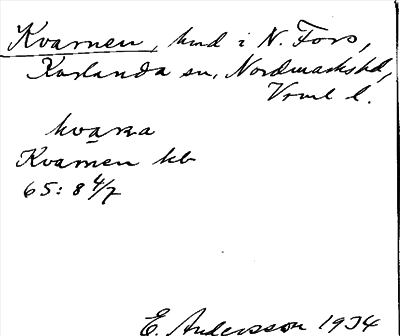 Kvarnen, hmd i N. Fors,
Karlanda sn, Nordmarks hd,
Vrml l.
kvaṇa
Kvarnen kb
65: 8 4/7
E. Andersson 1934